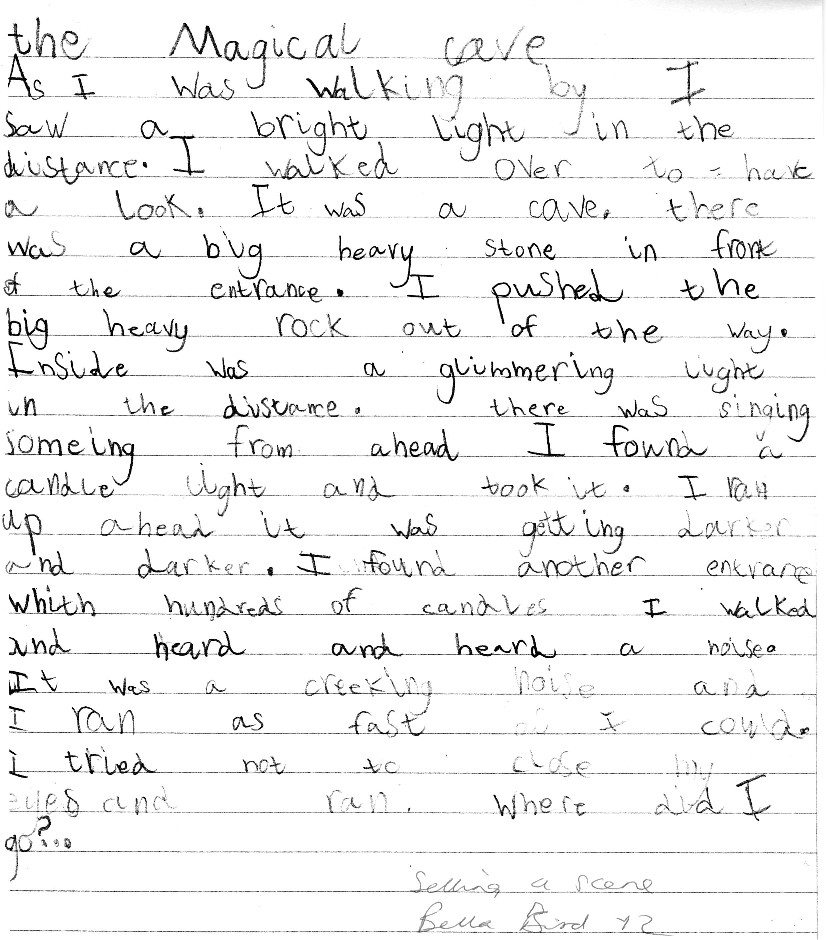 the Magical cave
As I was walking by I
saw a bright light in the
distance. I walked over to - have
a look. It was a cave. there
was a big heavy stone in front
of the entrance. I pushed the
big heavy rock out of the way.
Inside was a glimmering light
in the distance. there was singing
someing from ahead I found a
candle light and took it. I ran
up ahead it was getting darker
and darker. I found another entrance
whith hundreds of candles I walked
and heard and heard a noise.
It was a creeking noise and
I ran as fast as I could.
i tried not to close my
eyes and ran. Where did I
go?...
Setting a scene
Bella Bird Y2